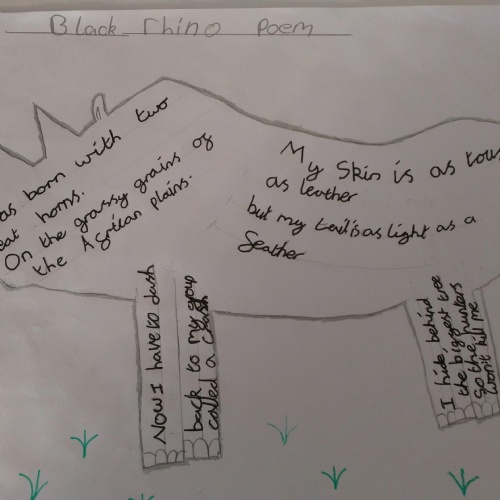 Black rhino Poem
as born with two
eat horns.
On the grassy grains of
the African plains.
My Skin is as tou
as leather
but my tail is as light as a
feather
Now I have to dash
back to my group
called a crash
I hide, behind
the biggest tree
So the hunters
won't kill me